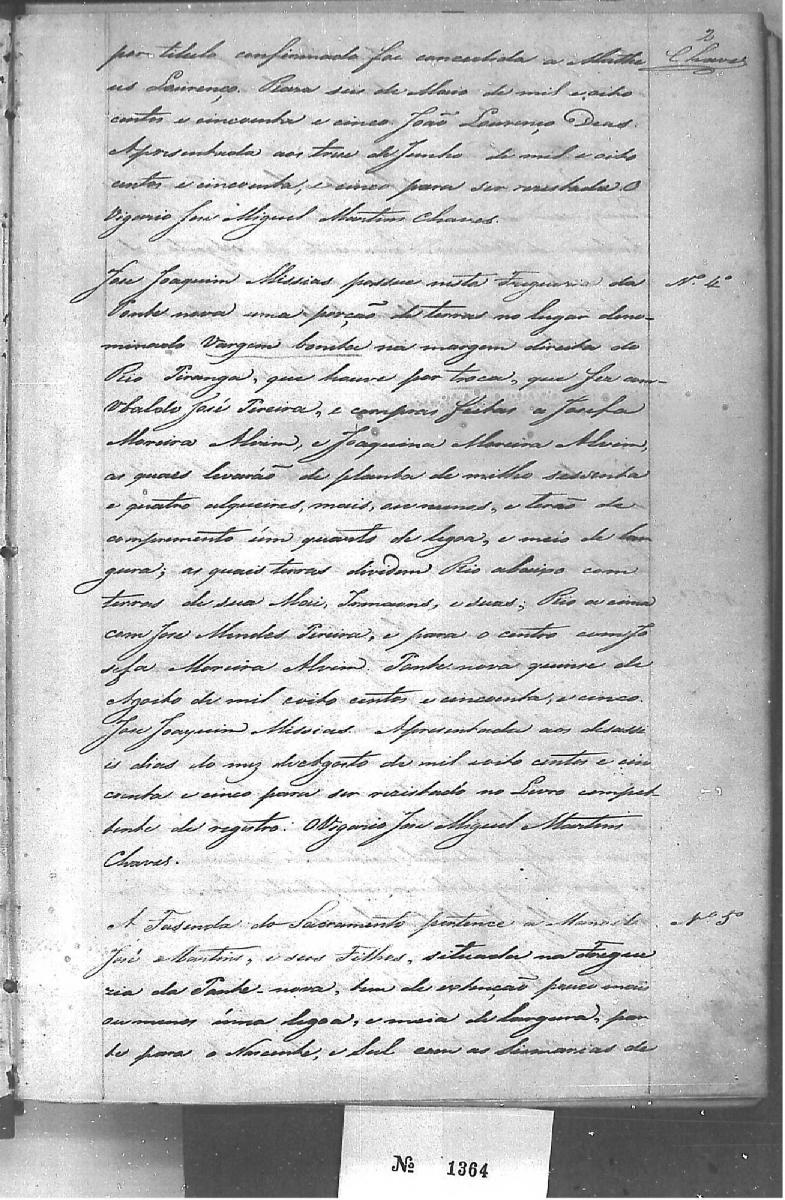 2
Chaves
por titulo confirmado foi concedida a Mathe
us Lourenço. Barra seis de Maio de mil e oito
centos e cincoenta e cinco João Lourenço Dias.
Apresentada aos treze de Junho de mil e oito
centos e cincoenta, e cinco para ser rezistada. O
Vigario José Miguel Martins Chaves.
Jose Joaquim Messias possue nesta Freguezia da
Nº 4º
Ponte nova uma porção de terras no lugar deno-
minado Vargem bonita na margem direita do
Rio Piranga, que houve por troca, que fez com
Ubaldo José Pereira, e compras feitas a Josefa
Moreira Alvim, e Joaquina Moreira Alvim,
as quais levarão de planta de milho sessenta
e quatro alqueires, mais, ou menos, e terão de
comprimento úm quarto de legoa, e meio de lar
gura; as quais terras dividem Rio abaixo com
terras de sua Mai, Irmaons, e suas; Rio a cima
com Jose Mendes Pereira, e para o centro com Jo
sefa Moreira Alvim. Ponte nova quinze de
Agosto de mil e oito centos e cincoenta, e cinco.
Jose Joaquim Messias. Apresentada aos desasse
is dias do mez de Agosto de mil e oito centos e cin
coenta e cinco para ser rezistado no Livro compet-
tente de registro. O Vigario Jose Miguel Martins
Chaves.
A Fasenda do Sacramento pertence a Manoel
Nº 5º
José Martins, e seus Filhos, situada na Fregue
zia da Ponte-nova, tem de extenção pouco mais
ou menos úma legoa, e meia de largura, par
te para o Nascente, e Sul com as Sismarias de
Nº 1364